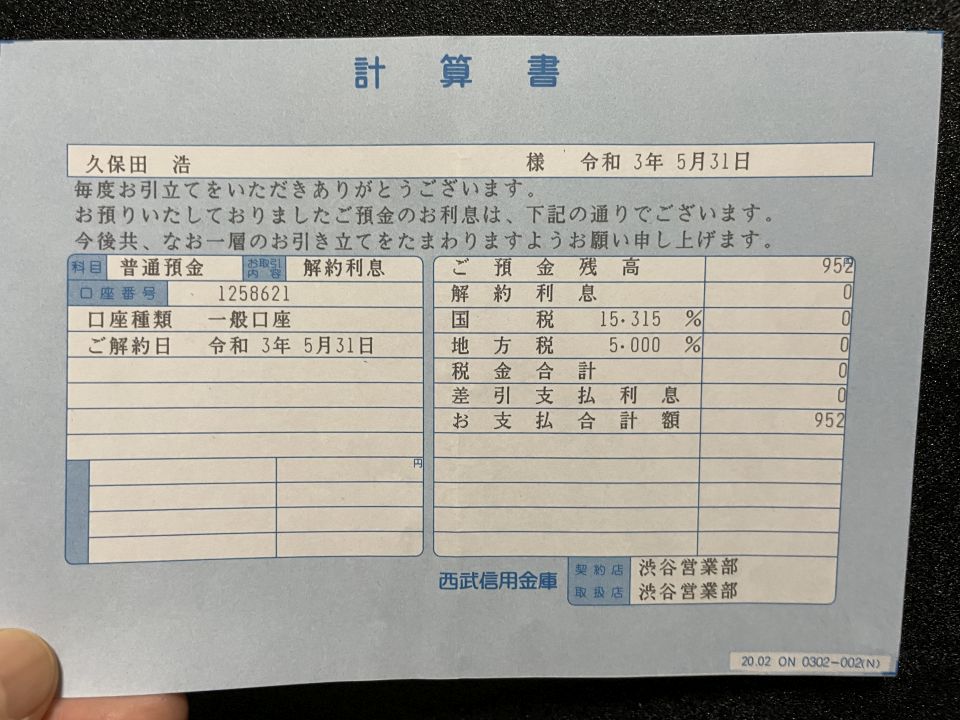 計算書
久保田 浩 様 令和 3年 5月31日
毎度お引立てをいただきありがとうございます。
お預りいたしておりましたご預金のお利息は、下記の通りでございます。
今後共、なお一層のお引き立てをたまわりますようお願い申し上げます。
科目 普通預金 お取引内容 解約利息
口座番号 1258621
口座種類 一般口座
ご解約日 令和 3年 5月31日
円
ご預金残高 952円
解約利息 0
国税 15.315 % 0
地方税 5.000 % 0
税金合計 0
差引支払利息 0
お支払合計額 952
西武信用金庫
契約店 渋谷営業部
取扱店 渋谷営業部
20.02 ON 0302-002(N)